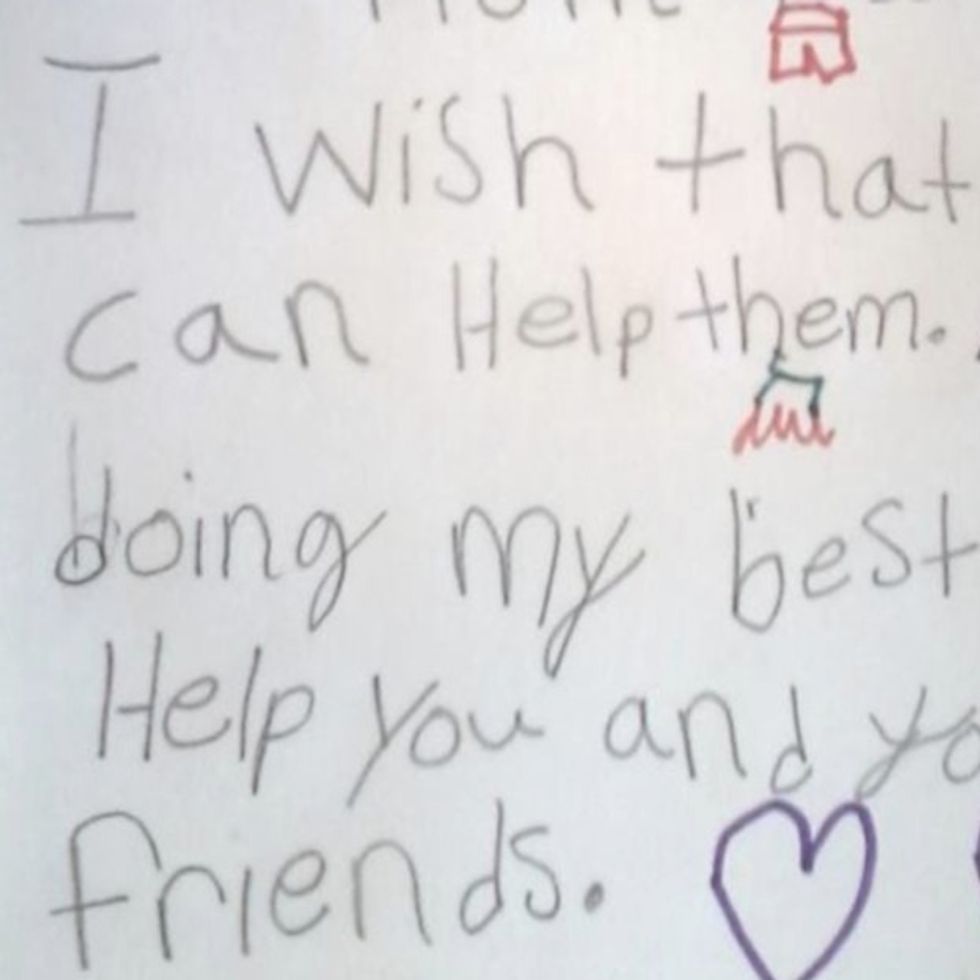 I wish that
can Help them.
doing my best
Help you and yo
friends.